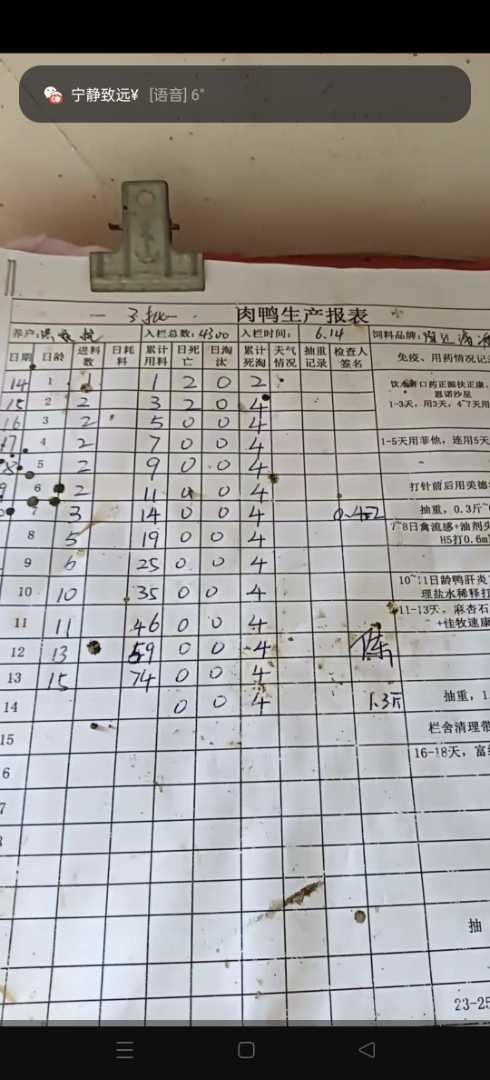 宁静致远¥ [语音] 6"
三批
肉鸭生产报表
养户: 入栏总数: 4300 入栏时间: 6.14 饲料品牌:
日期 日龄 进料数 日耗料 累计用料 日死亡 日淘汰 累计死淘 天气情况 抽重记录 检查人签名 免疫、用药情况记
14 1 1 2 0 2 饮水开口药正源扶正康,
15 2 2 3 2 0 4 1-3天,用3天,4~7天用
16 3 2 5 0 0 4
17 4 2 7 0 0 4 1-5天用菲他,连用5天
5 2 9 0 0 4
6 2 11 0 0 4 打针前后用美德
3 14 0 0 4 抽重,0.3斤
8 5 19 0 0 4 7~8日禽流感+油剂 H5打0.6m
9 6 25 0 0 4
10 10 35 0 0 4 10~11日龄鸭肝炎 理盐水稀释打
11 11 46 0 0 4 11-13天,麻杏石 +佳牧速康
12 13 59 0 0 4 陈
13 15 74 0 0 4
14 0 0 4 1.3斤 抽重,1.
15 栏舍清理带
6 16-18天,富
7
抽
23-25